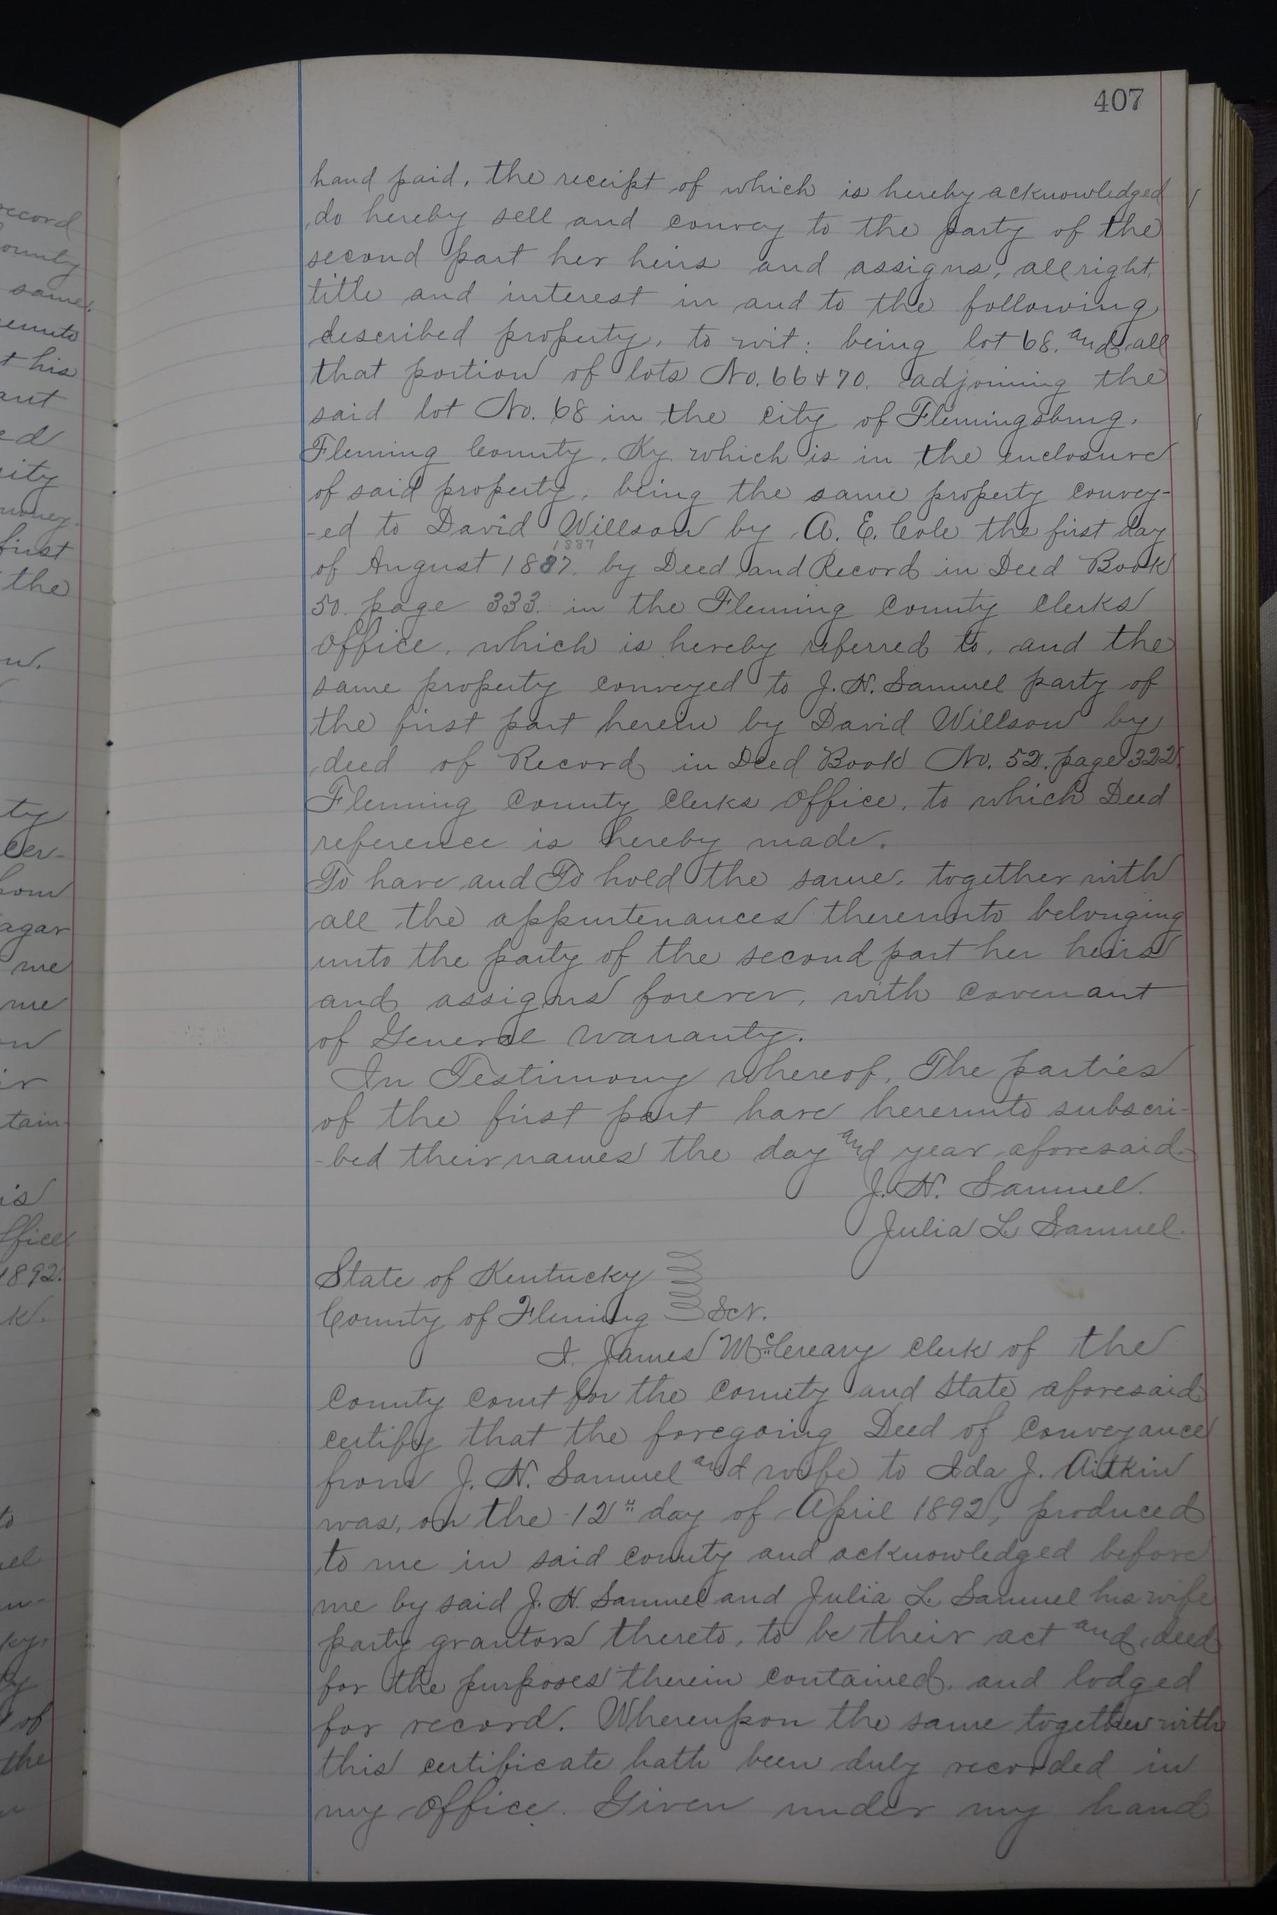 407
hand paid, the receipt of which is hereby acknowledged
do hereby sell and convey to the party of the
second part her heirs and assigns, all right,
title and interest in and to the following
described property, to wit: being lot 68. and all
that portion of lots No. 66 & 70. adjoining the
said lot No. 68 in the city of Flemingsburg,
Fleming County, Ky. which is in the enclosure
of said property, being the same property convey-
-ed to David Willson by A. E. Cole the first day
1887
of August 1887. by Deed and Record in Deed Book
50. page 333. in the Fleming County Clerks
Office, which is hereby referred to, and the
same property conveyed to J. N. Samuel party of
the first part herein by David Willson by
deed of Record in Deed Book No. 52. page 322.
Fleming County Clerks Office, to which Deed
reference is hereby made.
To have and To hold the same, together with
all the appurtenances thereunto belonging
unto the party of the second part her heirs
and assigns forever, with covenant
of General warranty.
In Testimony whereof, The parties
of the first part have hereunto subscri-
-bed their names the day and year aforesaid.
J. N. Samuel.
Julia L. Samuel.
State of Kentucky
County of Fleming Sct.
I, James McCreary Clerk of the
County Court for the County and State aforesaid
certify that the foregoing Deed of Conveyance
from J. N. Samuel and wife to Ida J. Aitkin
was, on the 12" day of April 1892, produced
to me in said county and acknowledged before
me by said J. N. Samuel and Julia L. Samuel his wife
party grantors thereto, to be their act and deed
for the purposes therein contained, and lodged
for record. Whereupon the same together with
this certificate hath been duly recorded in
my office. Given under my hand
record
ounty
same.
t his
ity
first
the
ty
agar
me
me
tain
1892.
of
the